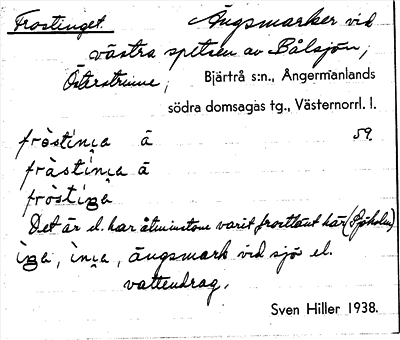 Frostinget. Ängsmarker vid
västra spetsen av Bålsjön,
Österstrinne, Bjärtrå s:n., Angermanlands
södra domsagas tg., Västernorrl. l.
fròstìnɩa ā 59.
fràstìnɩa ā
fròstìga
Det är el. har åtminstone varit frostlänt här (Sjöholm)
ìga, ìnɩa, ängsmark vid sjö el.
vattendrag.
Sven Hiller 1938.